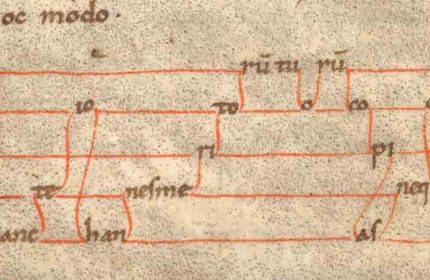 oc modo.
rū tu rū
io to o co
ri pi
te nesme neq
anc han as